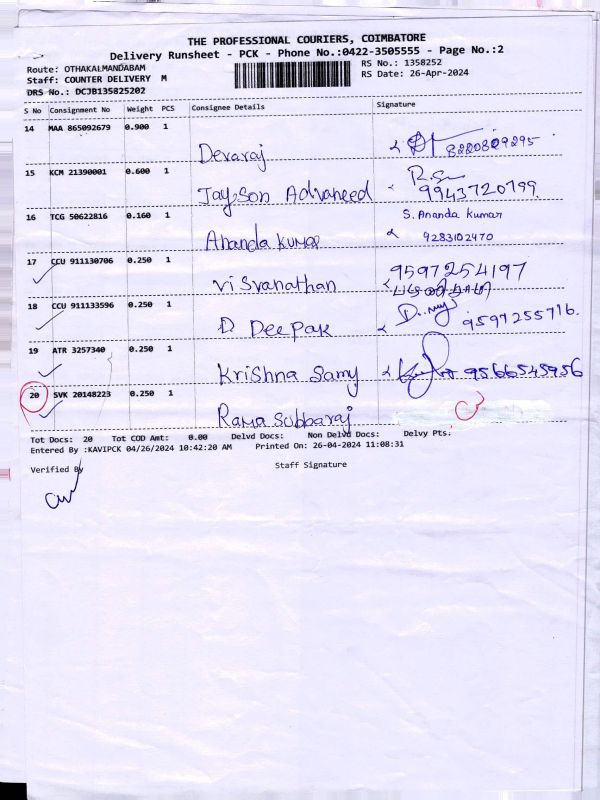 THE PROFESSIONAL COURIERS, COIMBATORE
Delivery Runsheet - PCK - Phone No.:0422-3505555 - Page No.:2
Route: OTHAKALMANDABAM
RS No.: 1358252
Staff: COUNTER DELIVERY M
RS Date: 26-Apr-2024
DRS No.: DCJB135825202
S No Consignment No Weight PCS Consignee Details Signature
14 MAA 865092679 0.900 1
Devaraj 8220809295
15 KCM 21390001 0.600 1
Jayson Advanced 9943720799
16 TCG 50622816 0.160 1 S. Ananda Kumar
Ananda Kumar 9283102470
17 CCU 911130706 0.250 1 9597254197
Visvanathan
18 CCU 911133596 0.250 1
D Deepak 9597255716.
19 ATR 3257340 0.250 1
Krishna Samy 9566545956
20 SVK 20148223 0.250 1
Rama Subbaraj
Tot Docs: 20 Tot COD Amt: 0.00 Delvd Docs: Non Delvd Docs: Delvy Pts:
Entered By :KAVIPCK 04/26/2024 10:42:20 AM Printed On: 26-04-2024 11:08:31
Verified By Staff Signature